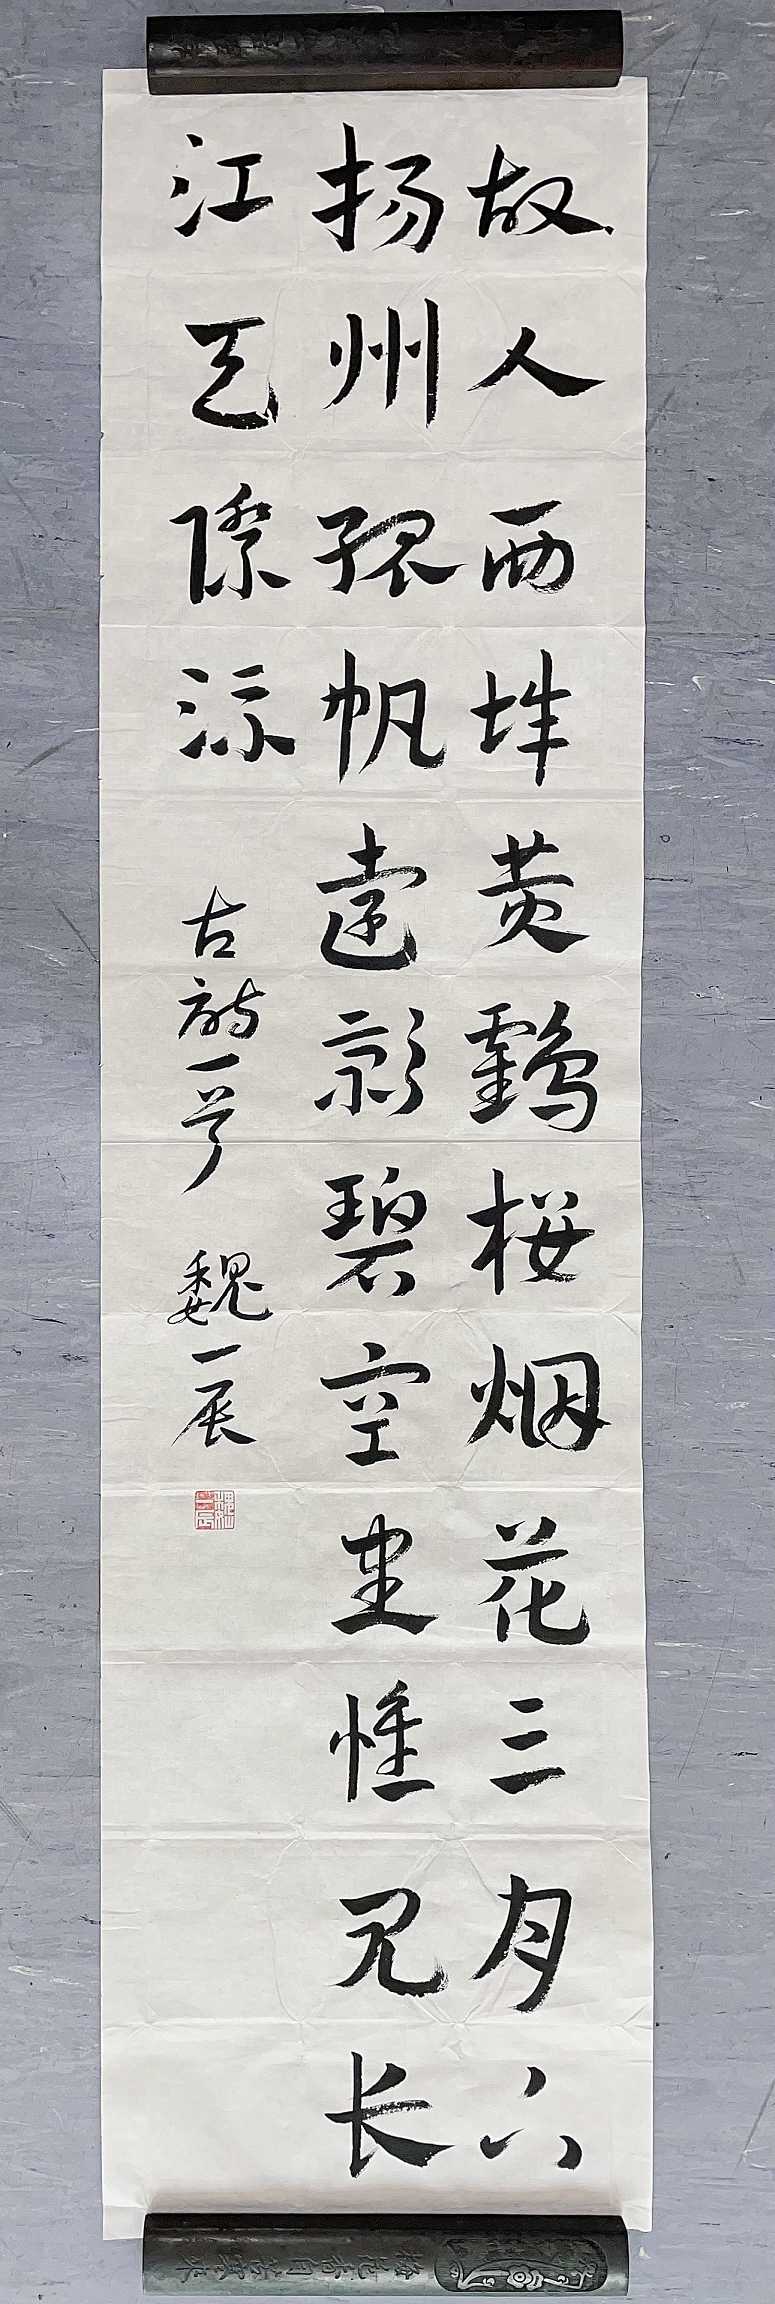 故人西辞黄鹤楼烟花三月下
扬州孤帆远影碧空尽惟见长
江天际流
古诗一首 魏一辰
梅花香自苦寒来